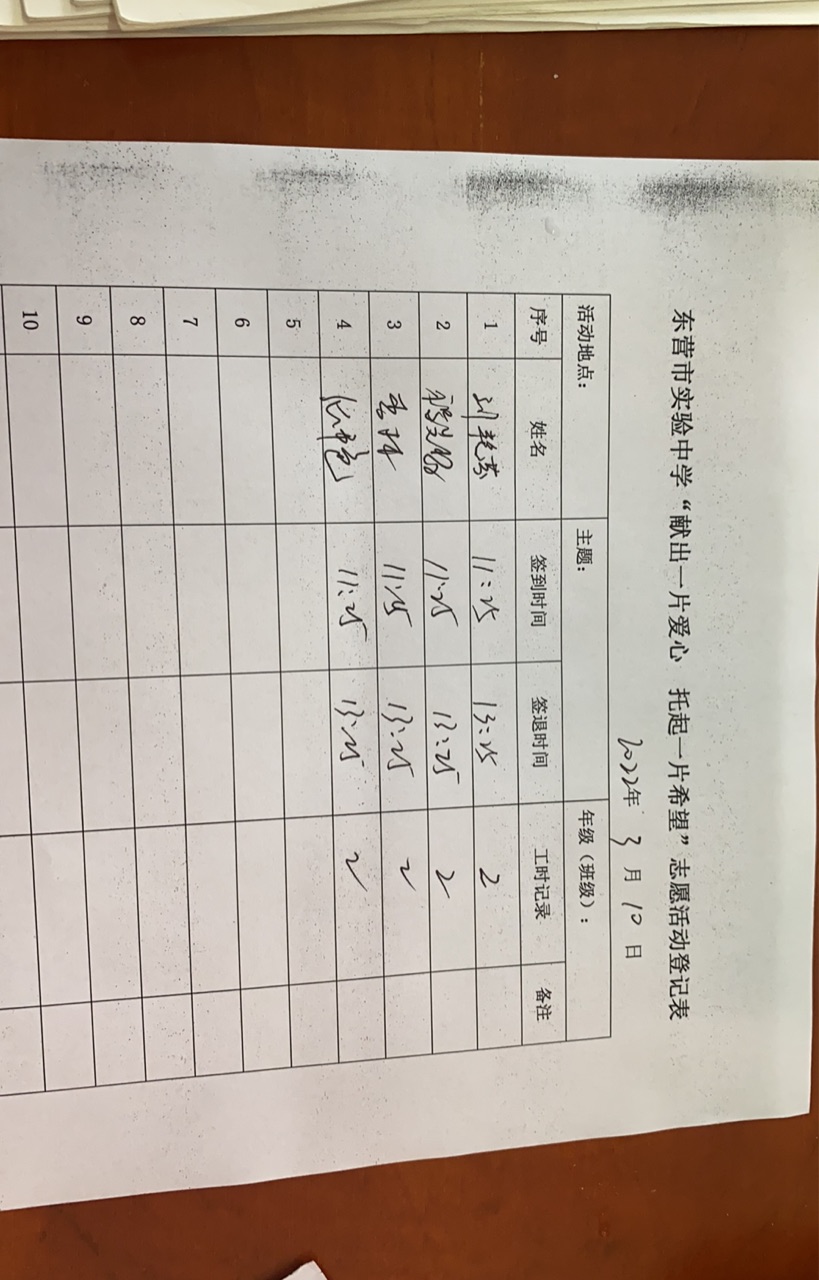 东营市实验中学“献出一片爱心 托起一片希望”志愿活动登记表
2022年 3 月 10 日
活动地点： 主题： 年级（班级）：
序号 姓名 签到时间 签退时间 工时记录 备注
1 刘艳芬 11:25 13:25 2
2 11:25 13:25 2
3 李林 11:25 13:25 2
4 11:25 13:25 2
5
6
7
8
9
10